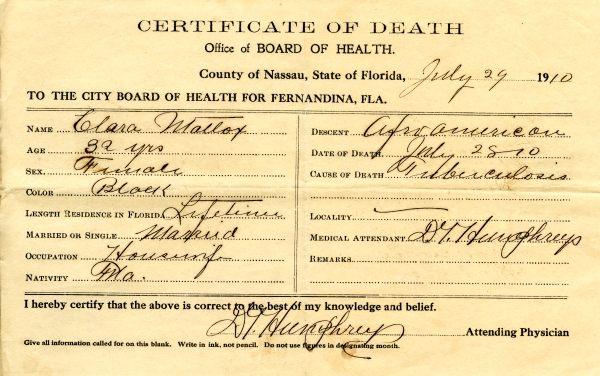 CERTIFICATE OF DEATH
Office of BOARD OF HEALTH.
County of Nassau, State of Florida, July 29 1910
TO THE CITY BOARD OF HEALTH FOR FERNANDINA, FLA.
NAME Clara Mattox
AGE 32 yrs
SEX. Female
COLOR Black
LENGTH RESIDENCE IN FLORIDA Lifetime
MARRIED OR SINGLE Married
OCCUPATION Housewife
NATIVITY Fla.
DESCENT Afro American
DATE OF DEATH July 28 10
CAUSE OF DEATH Tuberculosis
LOCALITY
MEDICAL ATTENDANT D.T. Humphreys
REMARKS
I hereby certify that the above is correct to the best of my knowledge and belief.
D.T. Humphreys Attending Physician
Give all information called for on this blank. Write in ink, not pencil. Do not use figures in designating month.